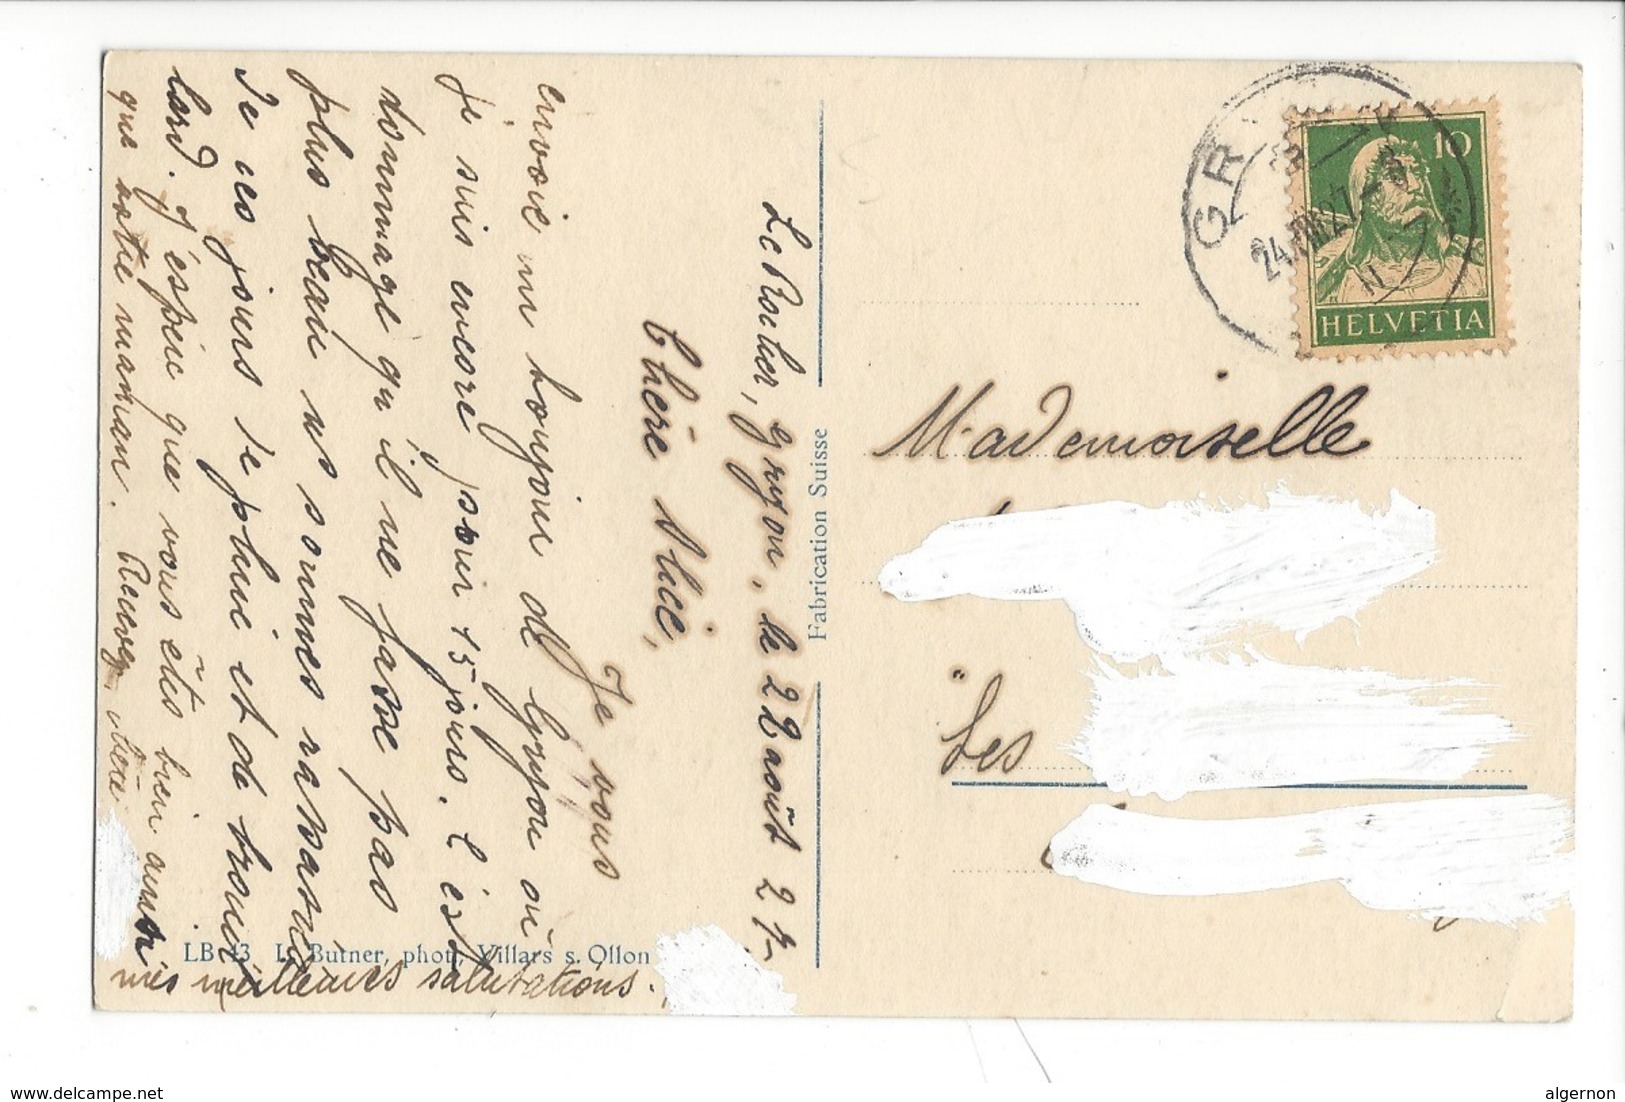 Le Rocher, Gryon, le 22 août 27-
Chère Alice,
Je vous
envoie un bonjour de Gryon où
je suis encore pour 15 jours. C'est
dommage qu'il ne fasse pas
plus beau ns sommes rassasié
de ces jours de pluie et de brouil
lard. J'espère que vous êtes bien ainsi
que votre maman. Recevez, chère
mes meilleures salutations.
LB 43 L. Butner, phot., Villars s. Ollon
Fabrication Suisse
GRYON
24.VIII.27-8
10
HELVETIA
Mademoiselle
"Les
delcampe.net
algernon